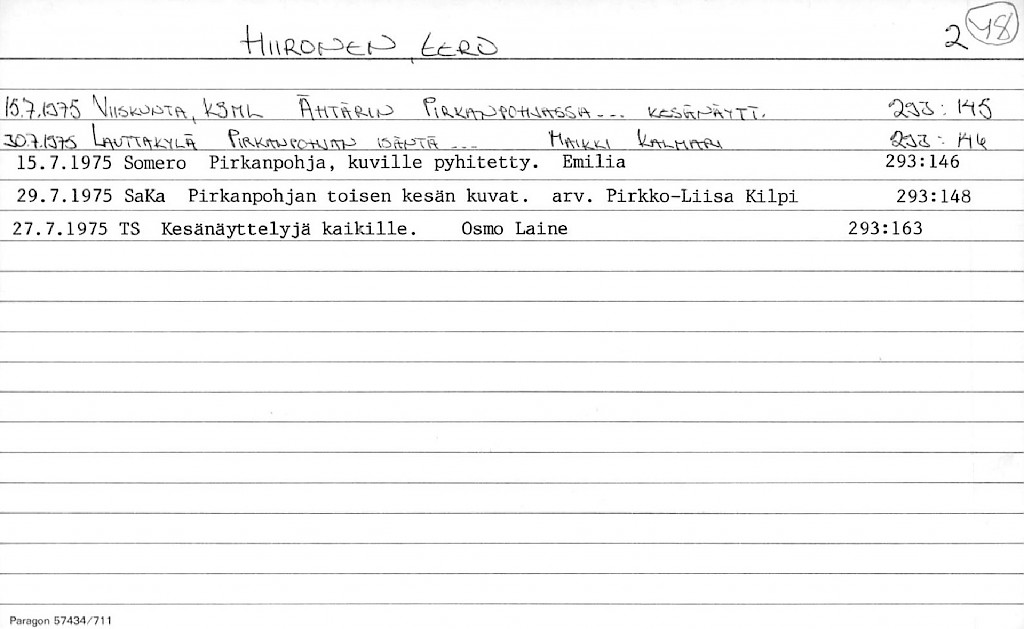 HIIRONEN, EERO 2 48
15.7.1975 VIISKUNTA, KSML ÄHTÄRIN PIRKANPOHJASSA... KESÄNÄYTT. 293:145
30.7.1975 LAUTTAKYLÄ PIRKANPOHJAN ISÄNTÄ ... MAIKKI KALMARI 293:146
15.7.1975 Somero Pirkanpohja, kuville pyhitetty. Emilia 293:146
29.7.1975 SaKa Pirkanpohjan toisen kesän kuvat. arv. Pirkko-Liisa Kilpi 293:148
27.7.1975 TS Kesänäyttelyjä kaikille. Osmo Laine 293:163
Paragon 57434/711